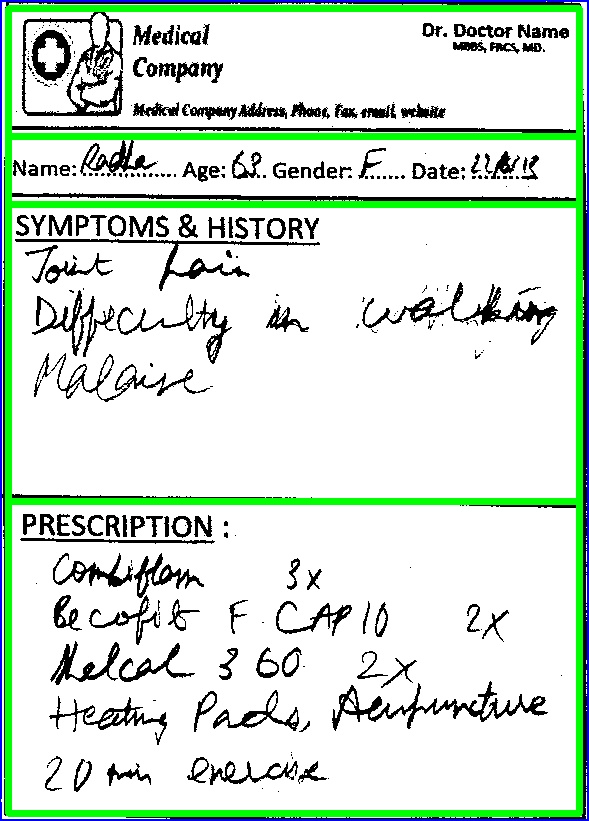 Medical
Company
Dr. Doctor Name
MBBS, FACS, MD.
Medical Company Address, Phone, Fax, email, website
Name: Radha Age: 63 Gender: F Date:
SYMPTOMS & HISTORY
Joint Pain
Diffeculty in walking
Malaise
PRESCRIPTION :
Combiflam 3x
Becofit F CAP 10 2x
Melcal 360 2x
Heating Pads, Acupuncture
20 min exercise